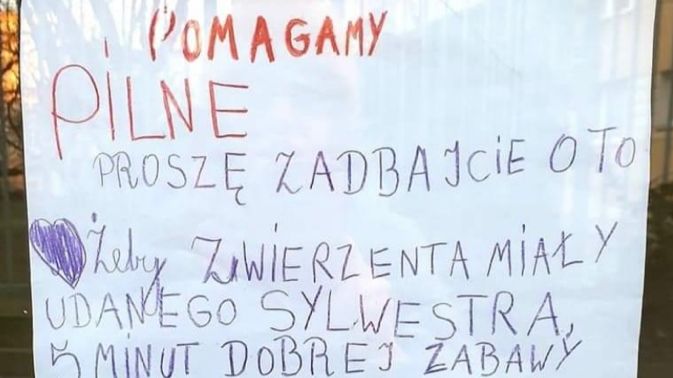 POMAGAMY
PILNE
PROSZĘ ZADBAJCIE O TO
Żeby ZWIERZENTA MIAŁY
UDANEGO SYLWESTRA,
5 MINUT DOBREJ ZABAWY